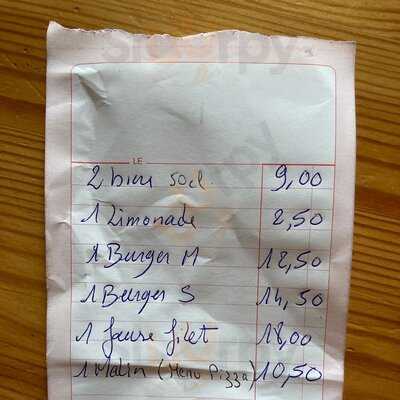 LE
2 bière 50cl. 9,00
1 Limonade 2,50
1 Burger M 12,50
1 Burger S 14,50
1 faux filet 18,00
1 Malin (Menu Pizza) 10,50